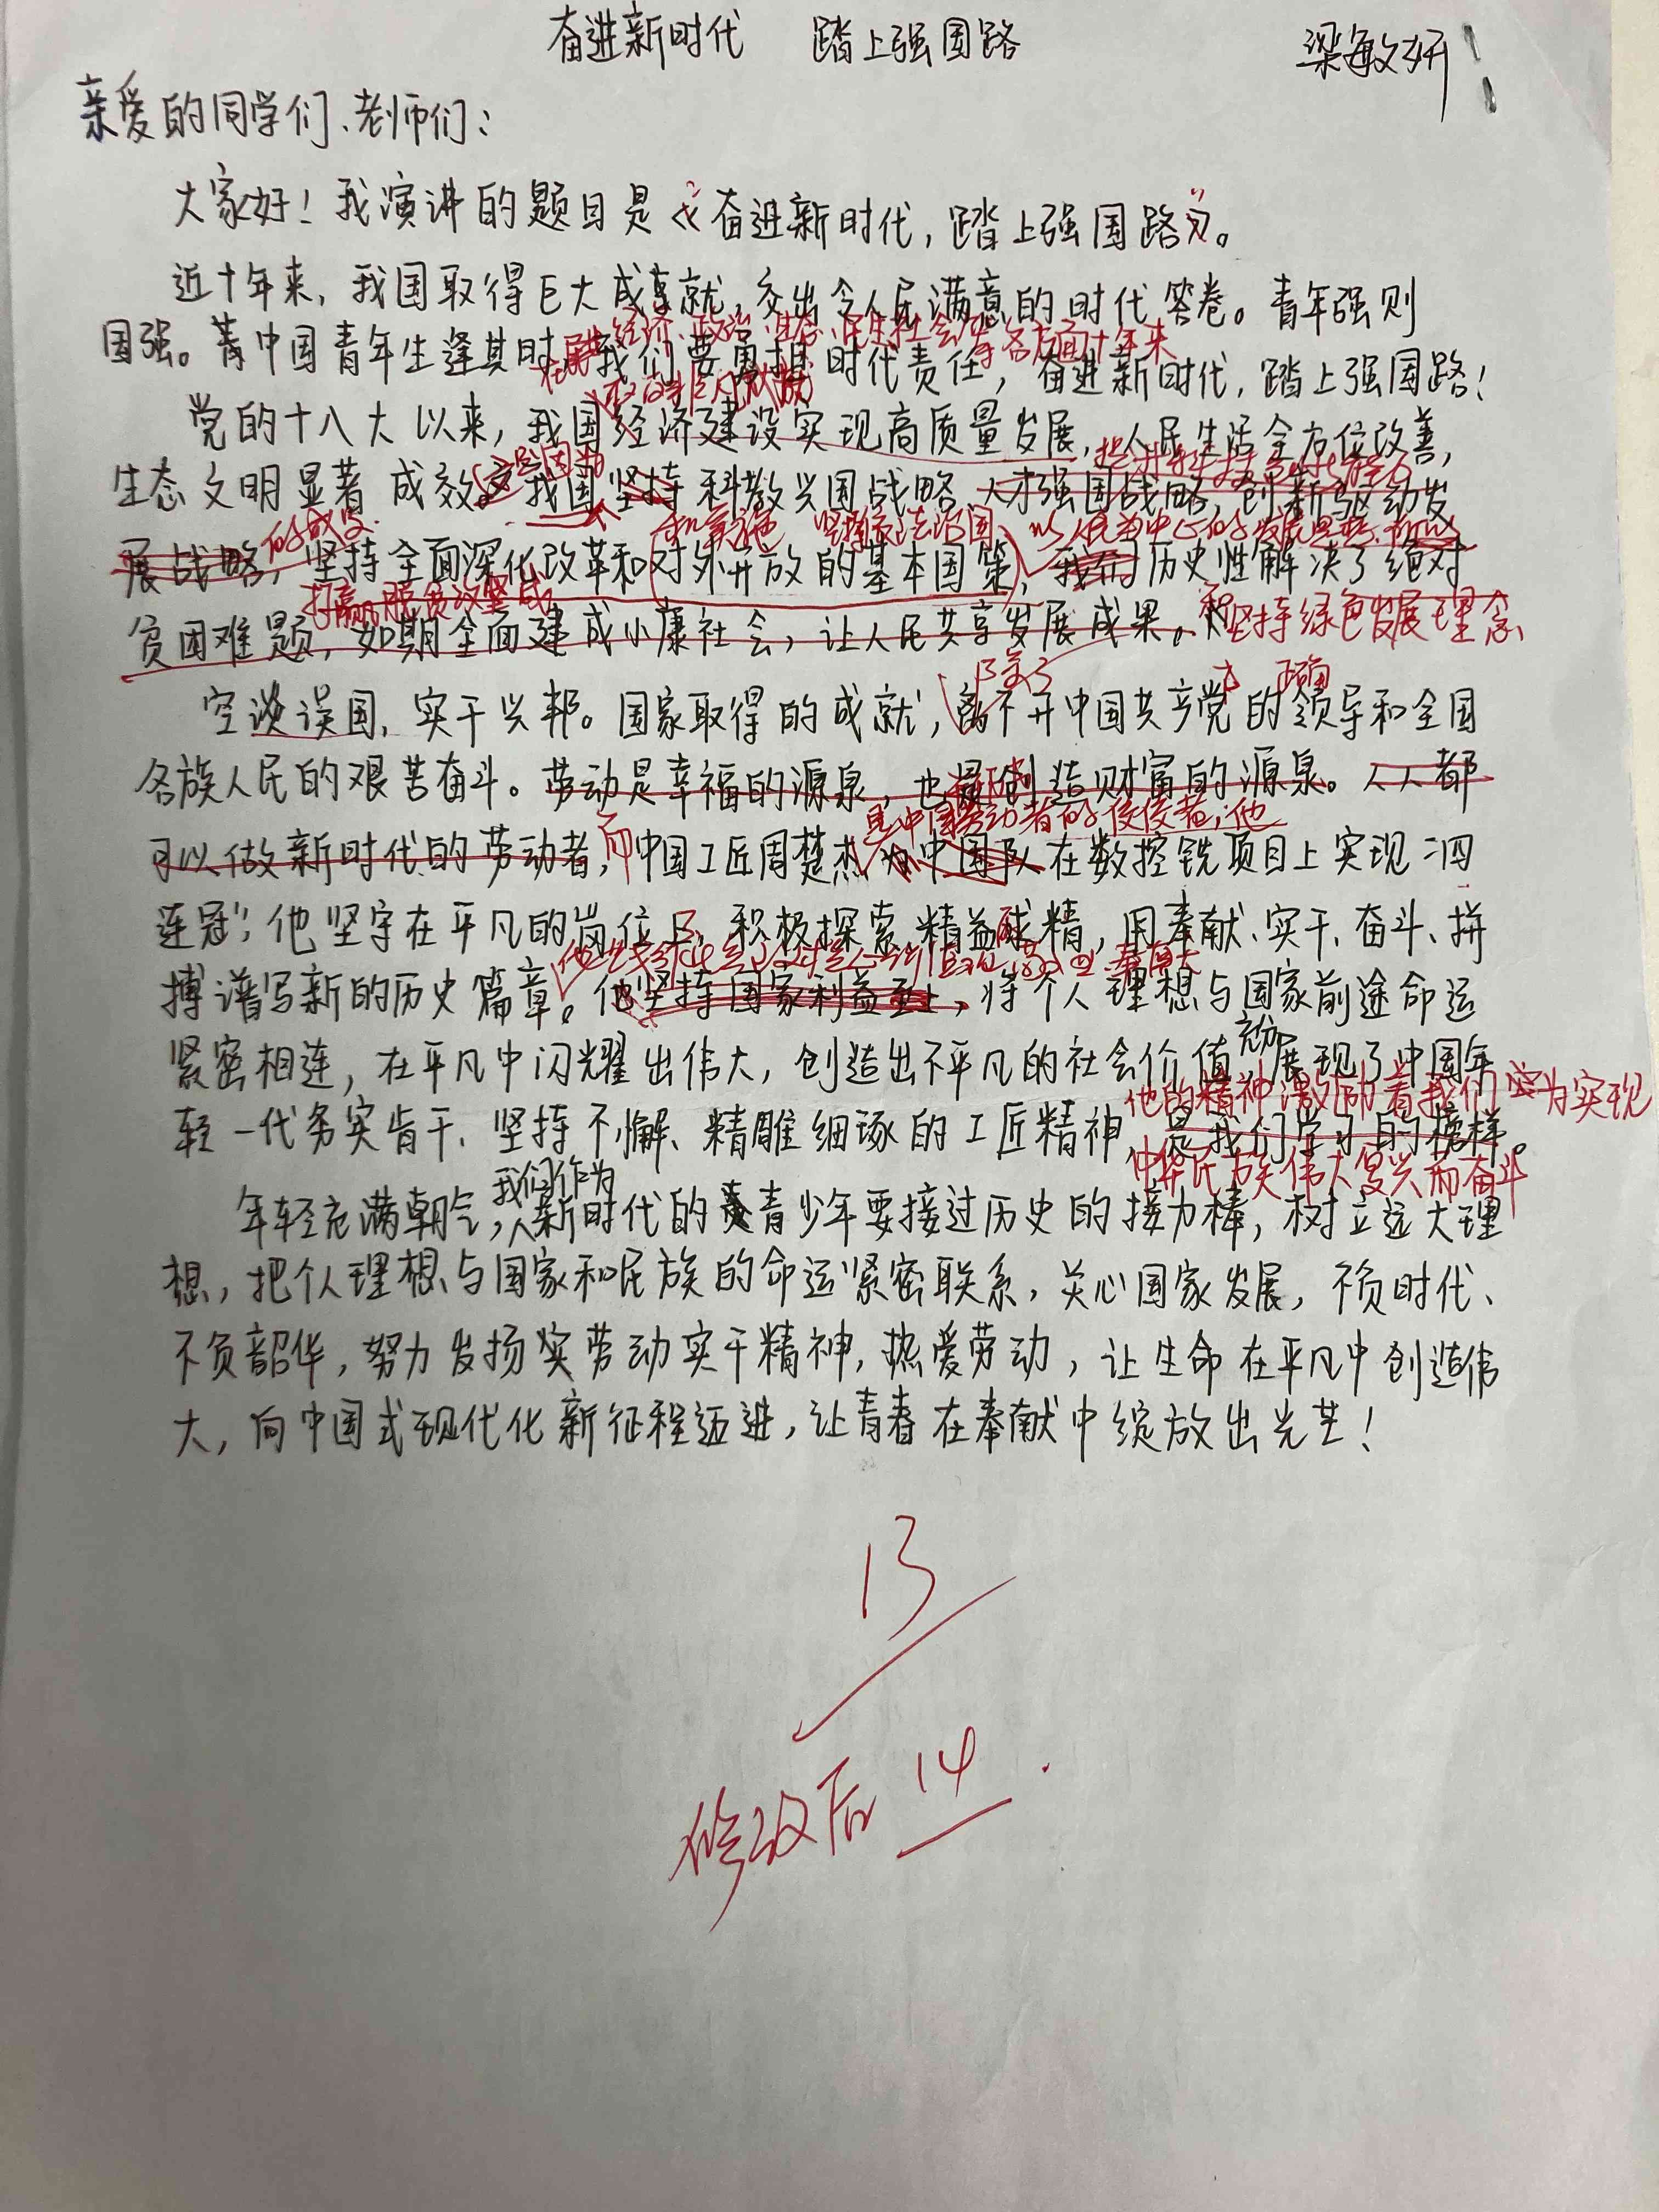 奋进新时代 踏上强国路
梁敏妍
亲爱的同学们、老师们：
大家好！我演讲的题目是《奋进新时代，踏上强国路》。
近十年来，我国取得巨大成就，交出令人民满意的时代答卷。青年强则
经济、政治、生态、民生社会 各方面十年来
国强。中国青年生逢其时，我们要勇担时代责任，奋进新时代，踏上强国路！
党的十八大以来，我国经济建设实现高质量发展，人民生活全方位改善，
生态文明显著成效。我国坚持科教兴国战略、人才强国战略，创新驱动发
的成果
展战略，坚持全面深化改革和对外开放的基本国策，我们历史性解决了绝对
打赢脱贫攻坚战
贫困难题，如期全面建成小康社会，让人民共享发展成果。和坚持绿色发展理念
除了
正确
空谈误国，实干兴邦。国家取得的成就，离不开中国共产党的领导和全国
各族人民的艰苦奋斗。劳动是幸福的源泉，也是创造财富的源泉。人人都
是中国劳动者的佼佼者，他
可以做新时代的劳动者，而中国工匠周楚杰为中国队在数控铣项目上实现“四
连冠”，他坚守在平凡的岗位上，积极探索，精益求精，用奉献、实干、奋斗、拼
搏谱写新的历史篇章。他坚持国家利益至上，将个人理想与国家前途命运
紧密相连，在平凡中闪耀出伟大，创造出不平凡的社会价值，充分展现了中国年
他的精神激励着我们为实现
轻一代务实肯干、坚持不懈、精雕细琢的工匠精神，是我们学习的榜样。
中华民族伟大复兴而奋斗
我们作为
年轻充满朝气，新时代的青少年要接过历史的接力棒，树立远大理
想，把个人理想与国家和民族的命运紧密联系，关心国家发展，不负时代、
不负韶华，努力发扬劳动实干精神，热爱劳动，让生命在平凡中创造伟
大，向中国式现代化新征程迈进，让青春在奉献中绽放出光芒！
13
修改后 14